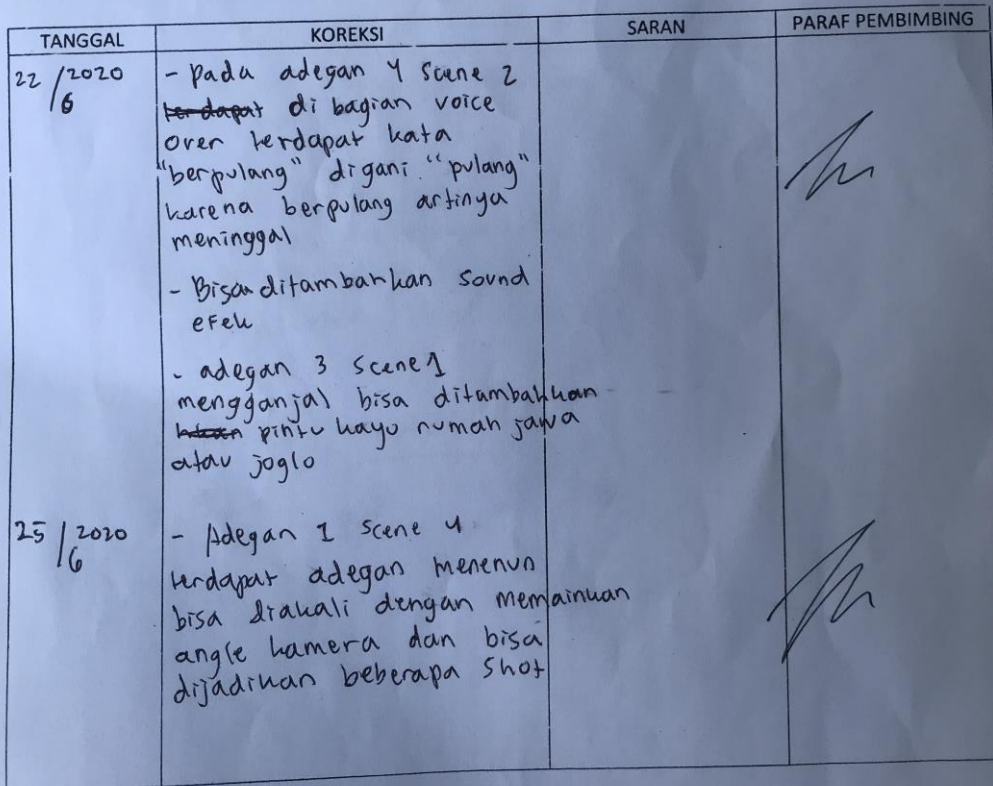 TANGGAL KOREKSI SARAN PARAF PEMBIMBING
22/6 2020
- Pada adegan 4 Scene 2
terdapat di bagian voice
over terdapat kata
"berpulang" digani "pulang"
karena berpulang artinya
meninggal
- Bisa ditambahkan sound
efek
- adegan 3 Scene 1
mengganjal bisa ditambahkan
pintu kayu rumah jawa
atau joglo
25/6 2020
- Adegan 1 Scene 4
terdapat adegan menenun
bisa diakali dengan memainkan
angle kamera dan bisa
dijadikan beberapa shot